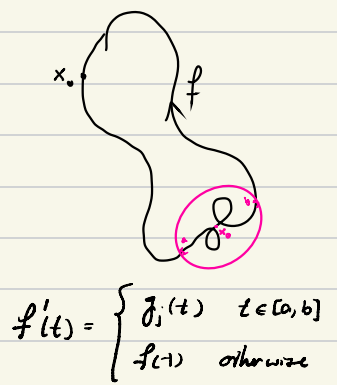 x₀
f
b
a
x₀
f'(t) = { g_j(t) t ∈ [a, b]
f(t) otherwise